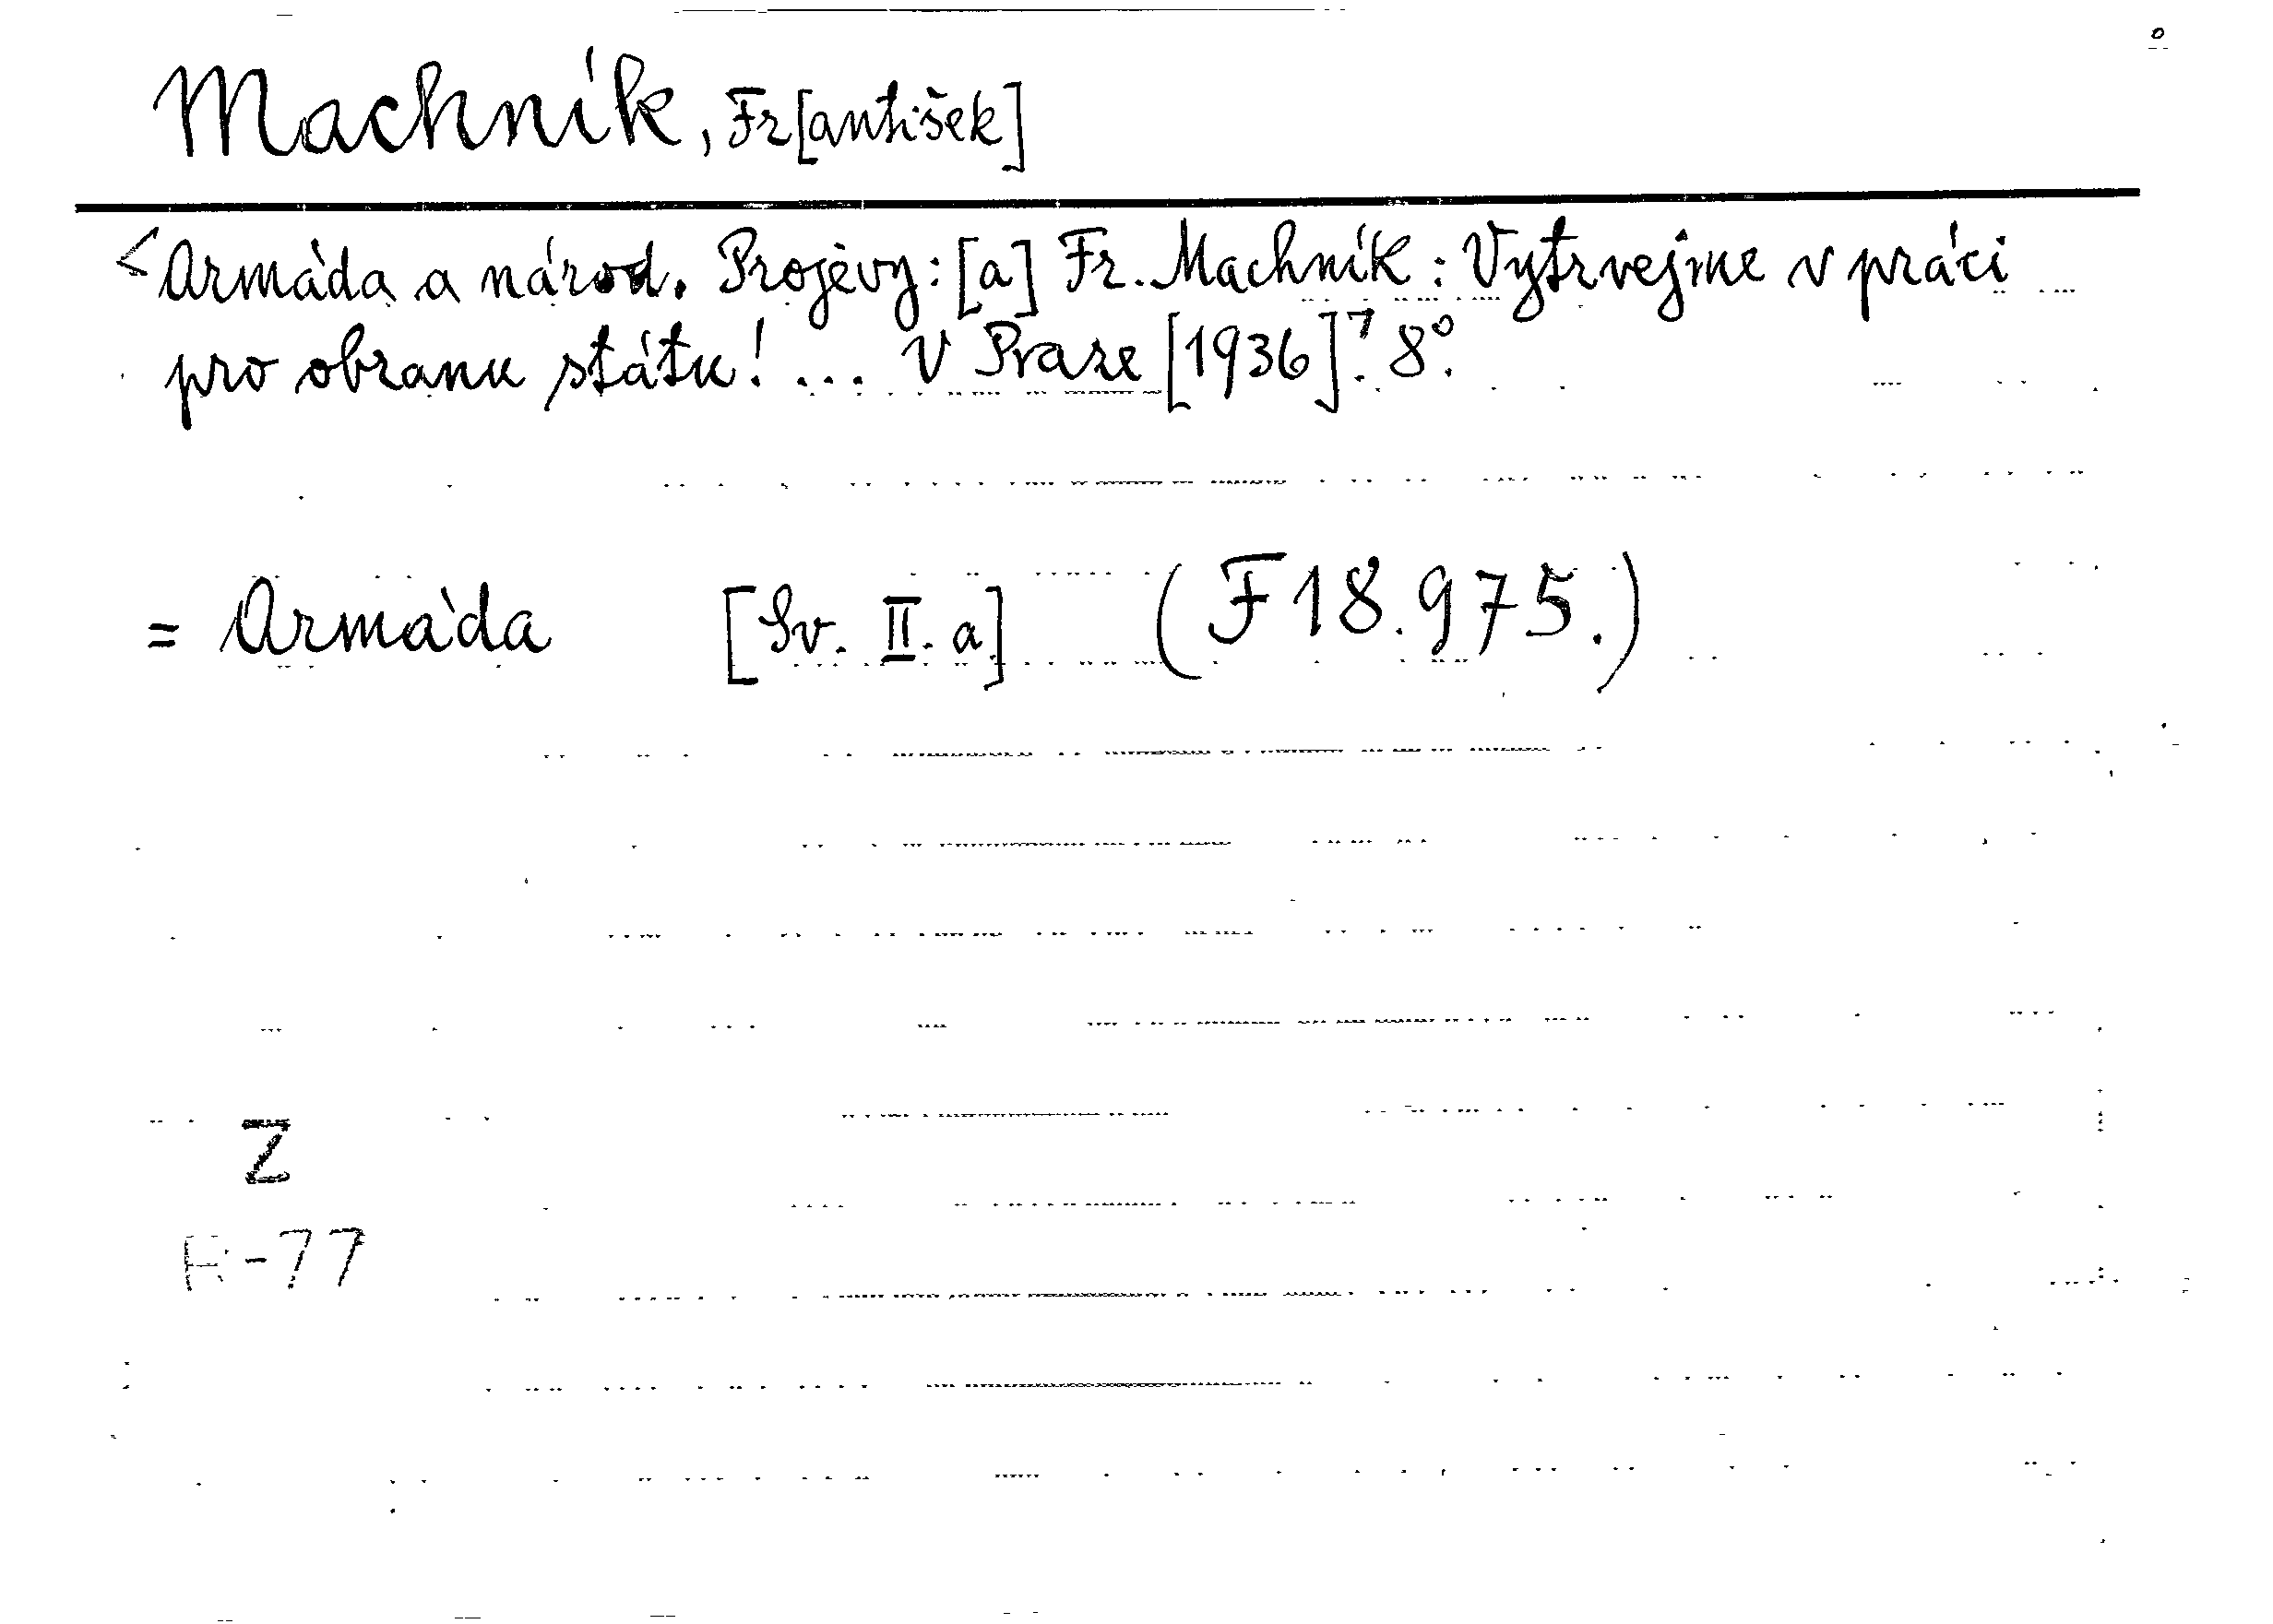 Machník, Fr[antišek]
<Armáda a národ. Projevy: [a] Fr. Machník: Vytrvejme v práci
pro obranu státu! ... V Praze [1936]⁷. 8°.
= Armáda [Sv. II. a] (F 18.975.)
Z
R-77